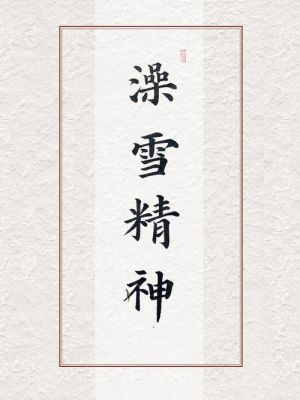 澡雪精神